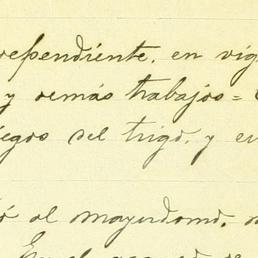 rependiente, en vig
y demás trabajos =
egos del trigo, y en
ó al mayordomo,
En el